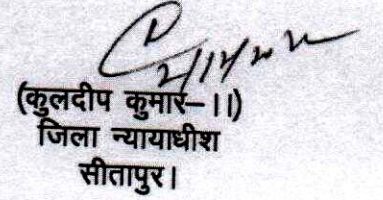 (कुलदीप कुमार–।।)
जिला न्यायाधीश
सीतापुर।